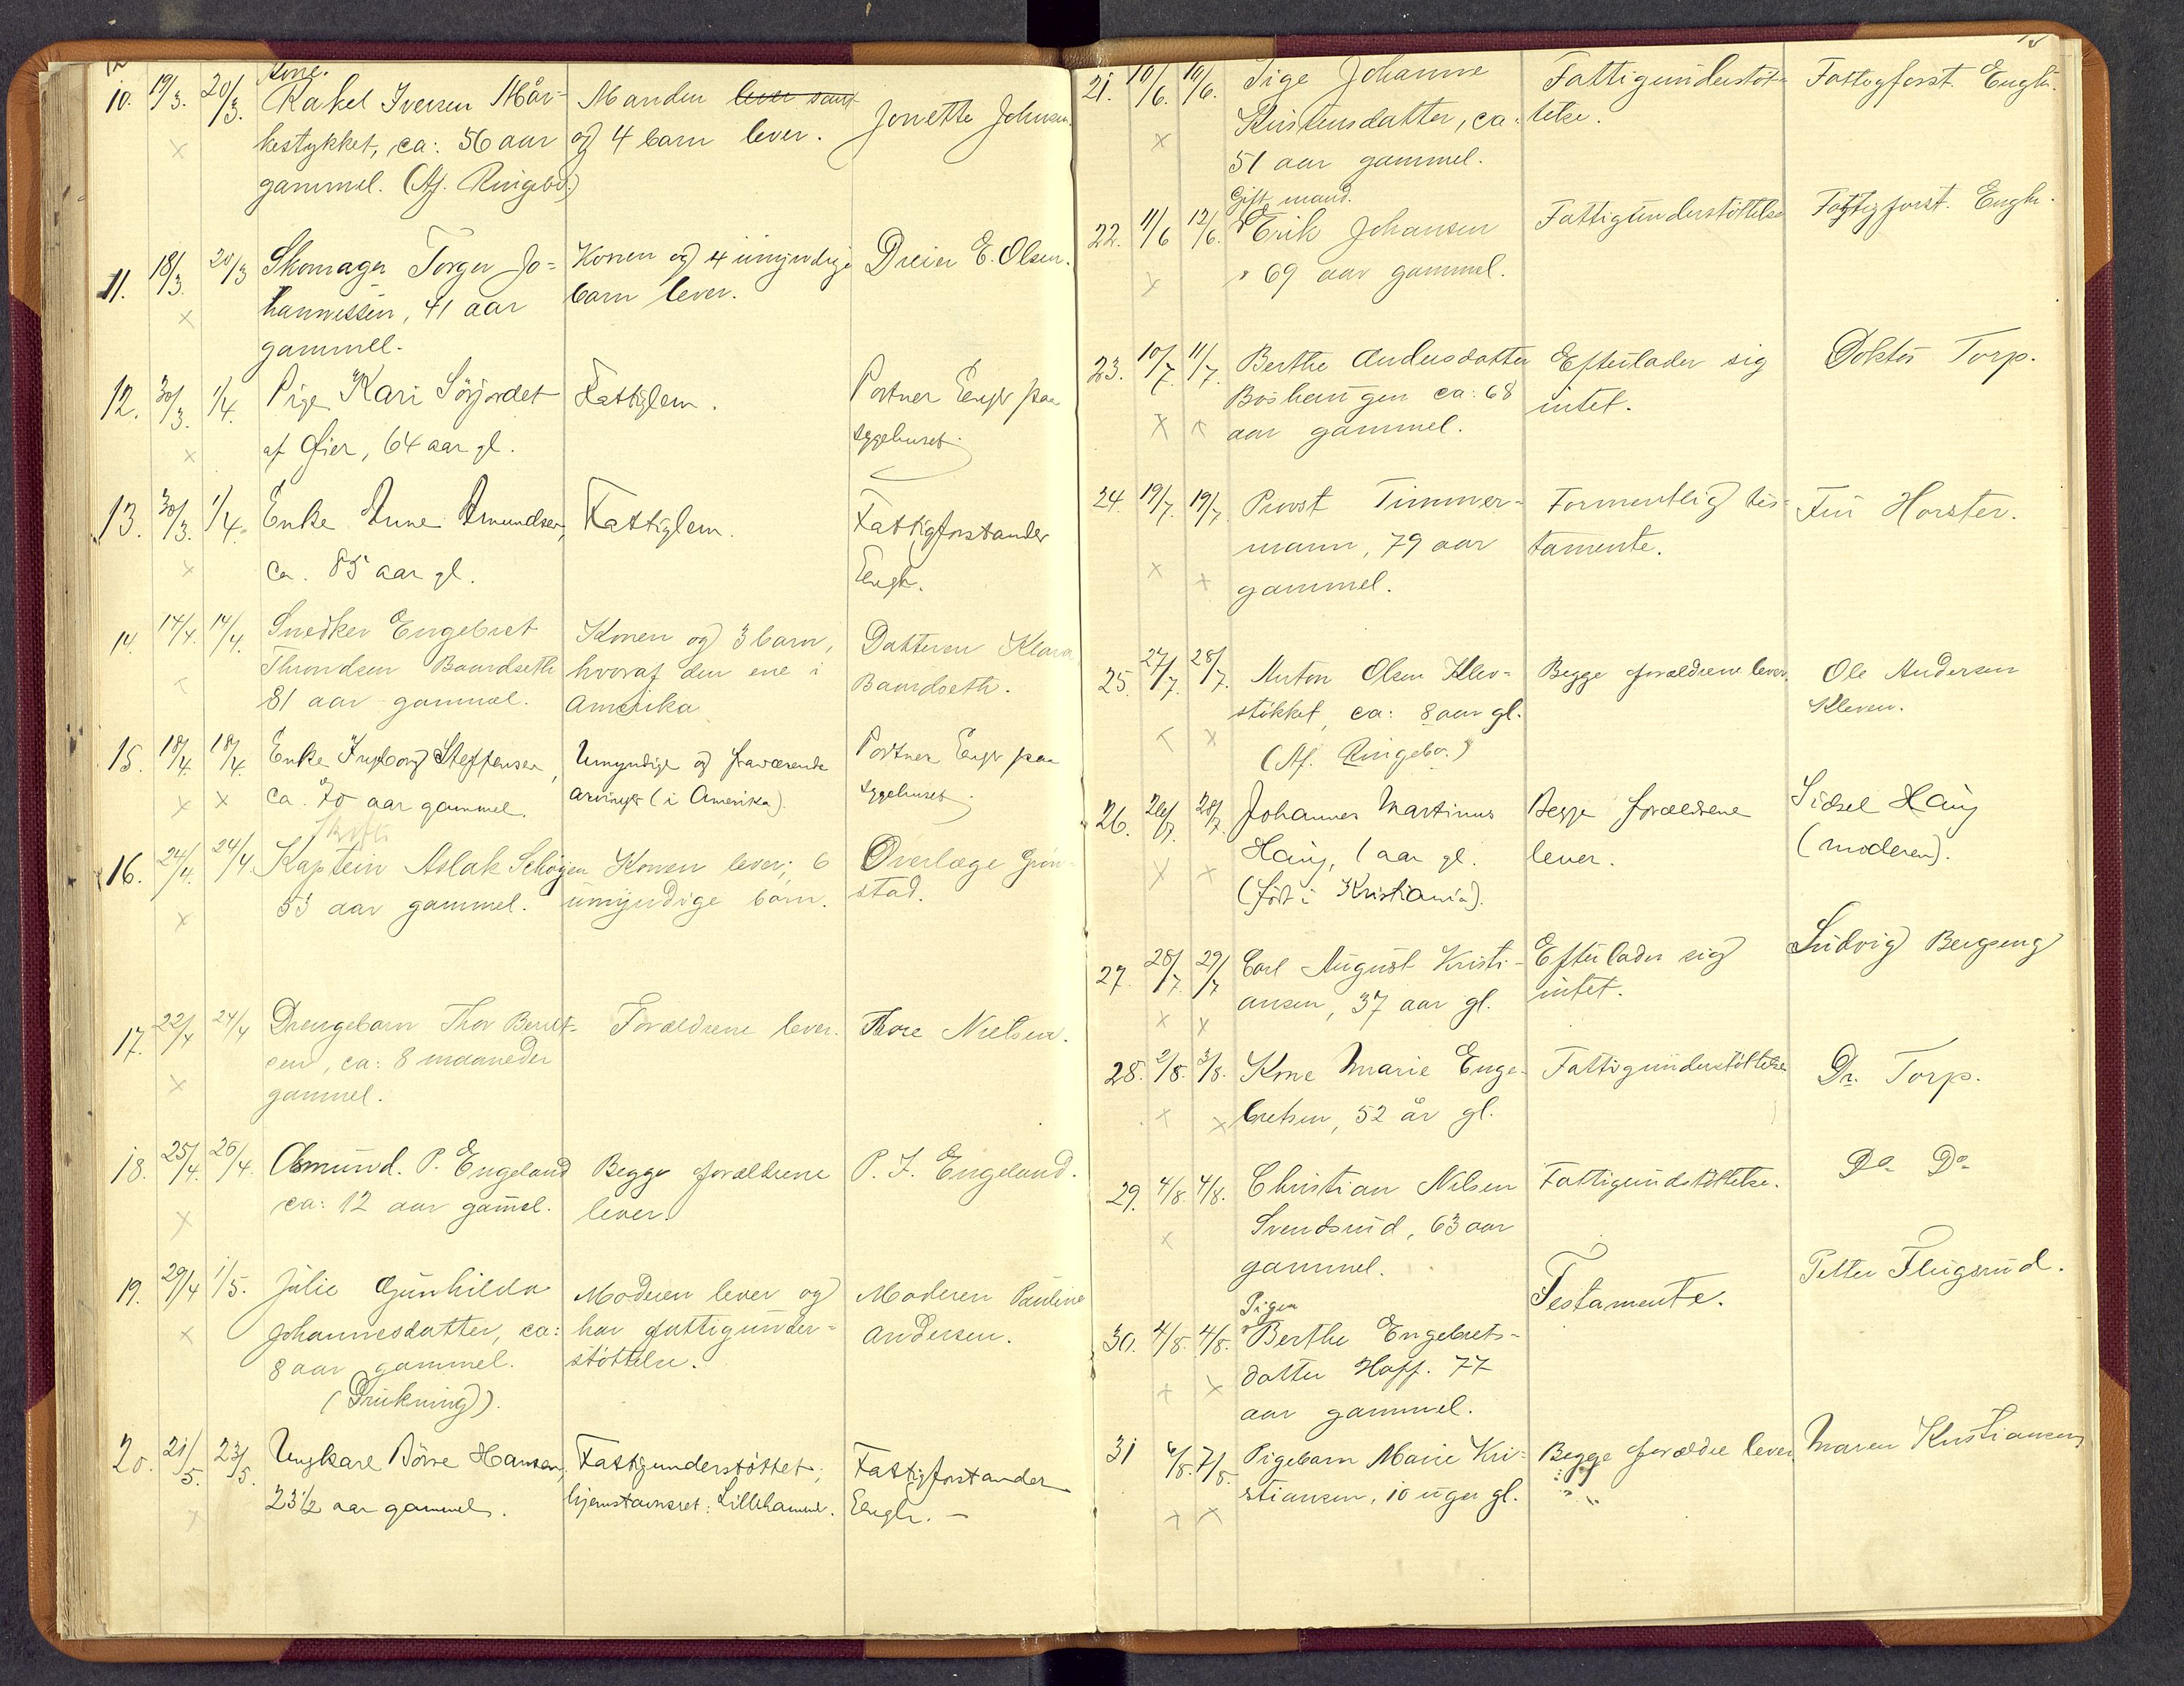 Kone.
10. 19/3. 20/3. Rakel Iversen Mår- Manden lever samt Jonette Johnsen.
kestykket, ca: 56 aar og 4 barn lever.
gammel. (Af. Ringebo.)
11. 18/3. 20/3 Skomager Torger Jo= Konen og 4 umyndige Dreier E. Olsen.
hannessen, 41 aar barn lever.
gammel.
12. 30/3. 1/4. Pige Kari Sörjordet Fattiglem. Portner Engh paa
af Øier, 64 aar gl. sygehuset.
13. 30/3. 1/4. Enke Anne Amundsen, Fattiglem. Fattigforstander
ca. 85 aar gl. Engh.
14. 14/4. 14/4. Snedker Engebret Konen og 3 barn, Datteren Klara
Throndsen Baardseth hvoraf den ene i Baardseth.
81 aar gammel. Amerika
15. 18/4. 18/4. Enke Ingeborg Steffensen, Umyndige og fraværende Portner Engh paa
ca. 70 aar gammel. arvinger (i Amerika). sygehuset.
Skifte
16. 24/4. 24/4. Kaptein Aslak Schöyen Konen lever; 6 Overlæge Grön-
53 aar gammel. umyndige barn. stad.
17. 22/4 24/4 Drengebarn Thor Bernt- Forældrene lever. Thore Nielsen.
sen, ca: 8 maaneder
gammel.
18. 25/4. 26/4. Osmund. P. Engeland Begge forældrene P. J. Engeland.
ca: 12 aar gammel. lever.
19. 29/4 1/5. Julie Gunhilda Moderen lever og Moderen Pauline
Johannesdatter, ca: har fattigunder= Andersen.
8 aar gammel. støttelse.
(Drukning).
20. 21/5. 23/5. Ungkarl Börre Hansen, Fattigunderstöttet; Fattigforstander
23 1/2 aar gammel. hjemstavnsret: Lillehammer. Engh. —
21. 10/6. 14/6. Pige Johanne Fattigunderstöt- Fattigforst. Engh.
Kristensdatter, ca: telse.
51 aar gammel.
Gift mand.
22. 11/6 12/6. Erik Johansen Fattigunderstöttelse Fattigforst. Engh.
69 aar gammel.
23. 10/7. 11/7. Berthe Andersdatter Efterlader sig Doktor Torp.
Böshaugen ca: 68 intet.
aar gammel.
24. 19/7. 19/7. Provst Timmer- Formentlig tes- Fru Horster.
mann, 79 aar tamente.
gammel.
25. 27/7. 28/7. Anton Olsen Klev- Begge forældrene lever. Ole Andersen
stökket, ca: 8 aar gl. Kleven.
(Af. Ringebo.)
26. 26/7 28/7. Johannes Martinus Begge forældrene Sidsel Haug
Haug, 1 aar gl. lever. (moderen).
(född i Kristiania).
27. 28/7. 29/7 Carl August Kristi- Efterlader sig Ludvig Bergseng
ansen, 37 aar gl. intet.
28. 2/8. 3/8. Kone Marie Enge- Fattigunderstöttelse Dr. Torp.
bretsen, 52 år gl.
29. 4/8. 4/8. Christian Nilsen Fattigundstöttelse. Do Do
Svendsrud, 63 aar
gammel.
Pigen
30. 4/8. 4/8. Berthe Engebrets- Testamente. Petter Flugsrud.
datter Hoff. 77
aar gammel.
31 6/8. 7/8. Pigebarn Marie Kri- Begge forældre lever. Maren Kristiansen
stiansen, 10 uger gl.